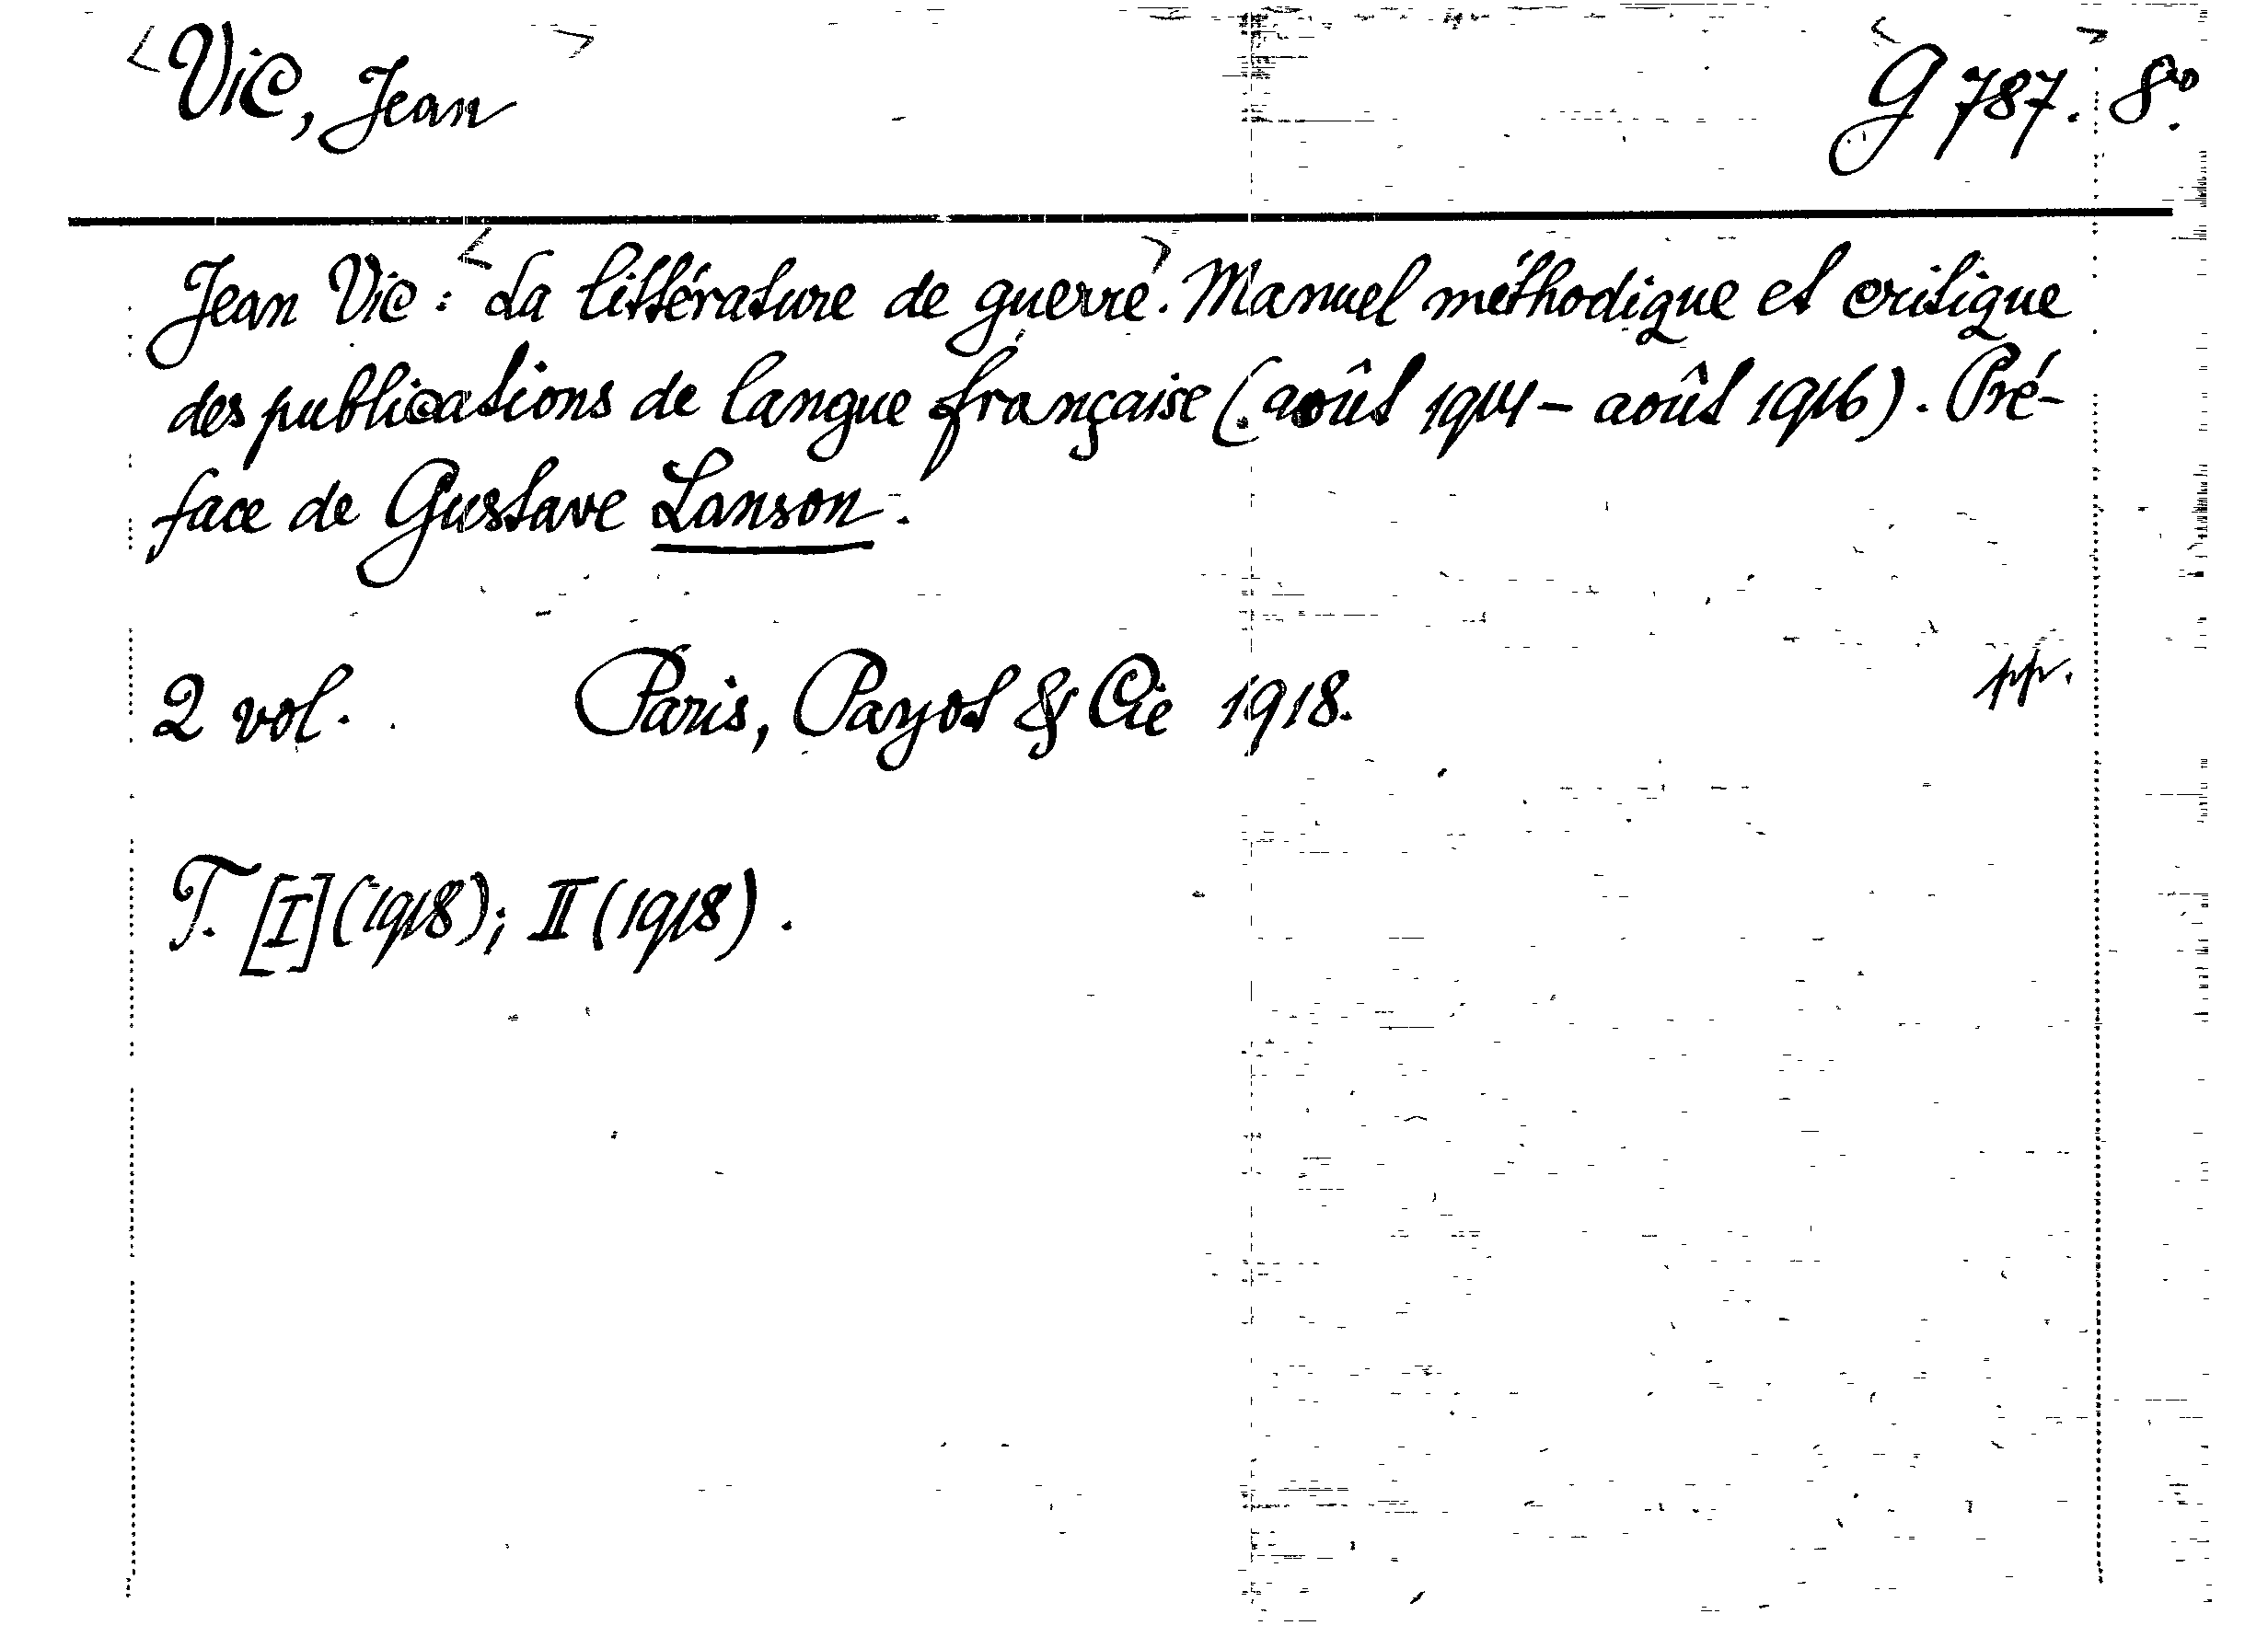 <Vic, Jean> <G 787. 8°.>
Jean Vic: <La littérature de guerre>. Manuel méthodique et critique
des publications de langue française (août 1914 – août 1916). Pré-
face de Gustave Lanson.
2 vol. Paris, Payot & Cie 1918. pp.
T. [I] (1918); II (1918).